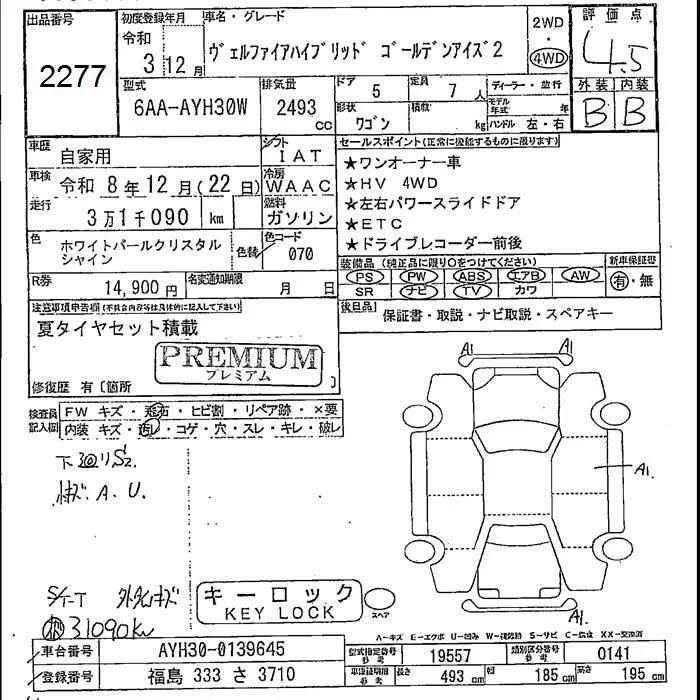 出品番号
2277
初度登録年月
令和
3年12月
車名・グレード
ヴェルファイアハイブリッド ゴールデンアイズ2
2WD
・
4WD
評価点
4.5
型式
6AA-AYH30W
排気量
2493
cc
ドア
5
定員
7人
形状
ワゴン
積載
kg
ディーラー・並行
モデル年式 年
ハンドル 左・右
外装 内装
B B
車歴
自家用
シフト
IAT
車検
令和 8年12月(22日)
冷房
WAAC
走行
3万1千090 km
燃料
ガソリン
色
ホワイトパールクリスタル
シャイン
色替
色コード
070
R券
14,900円
名変通知期限
月 日
セールスポイント(正常に機能するものに限ります)
★ワンオーナー車
★HV 4WD
★左右パワースライドドア
★ETC
★ドライブレコーダー前後
装備品 (純正品に限り○をつけてください)
PS PW ABS エアB AW
SR ナビ TV カワ
新車保証書
有・無
後日品
保証書・取説・ナビ取説・スペアキー
注意事項申告欄(不具合内容等は具体的に記入して下さい)
夏タイヤセット積載
PREMIUM
プレミアム
修復歴 有〔箇所 〕
検査員記入欄
FW キズ・飛石・ヒビ割・リペア跡・×要
内装 キズ・汚レ・コゲ・穴・スレ・キレ・破レ
下回りS2
小キズ A.U.
A1
A1
A1.
A1.
キーロック
KEY LOCK
スペア
31090km
A-キズ E-エクボ U-凹み W-補修跡 S-サビ C-腐食 XX-交換済
車台番号
AYH30-0139645
登録番号
福島 333 さ 3710
型式指定番号
参考
19557
類別区分番号
参考
0141
車検証記載
参考
長さ
493 cm
幅
185 cm
高さ
195 cm